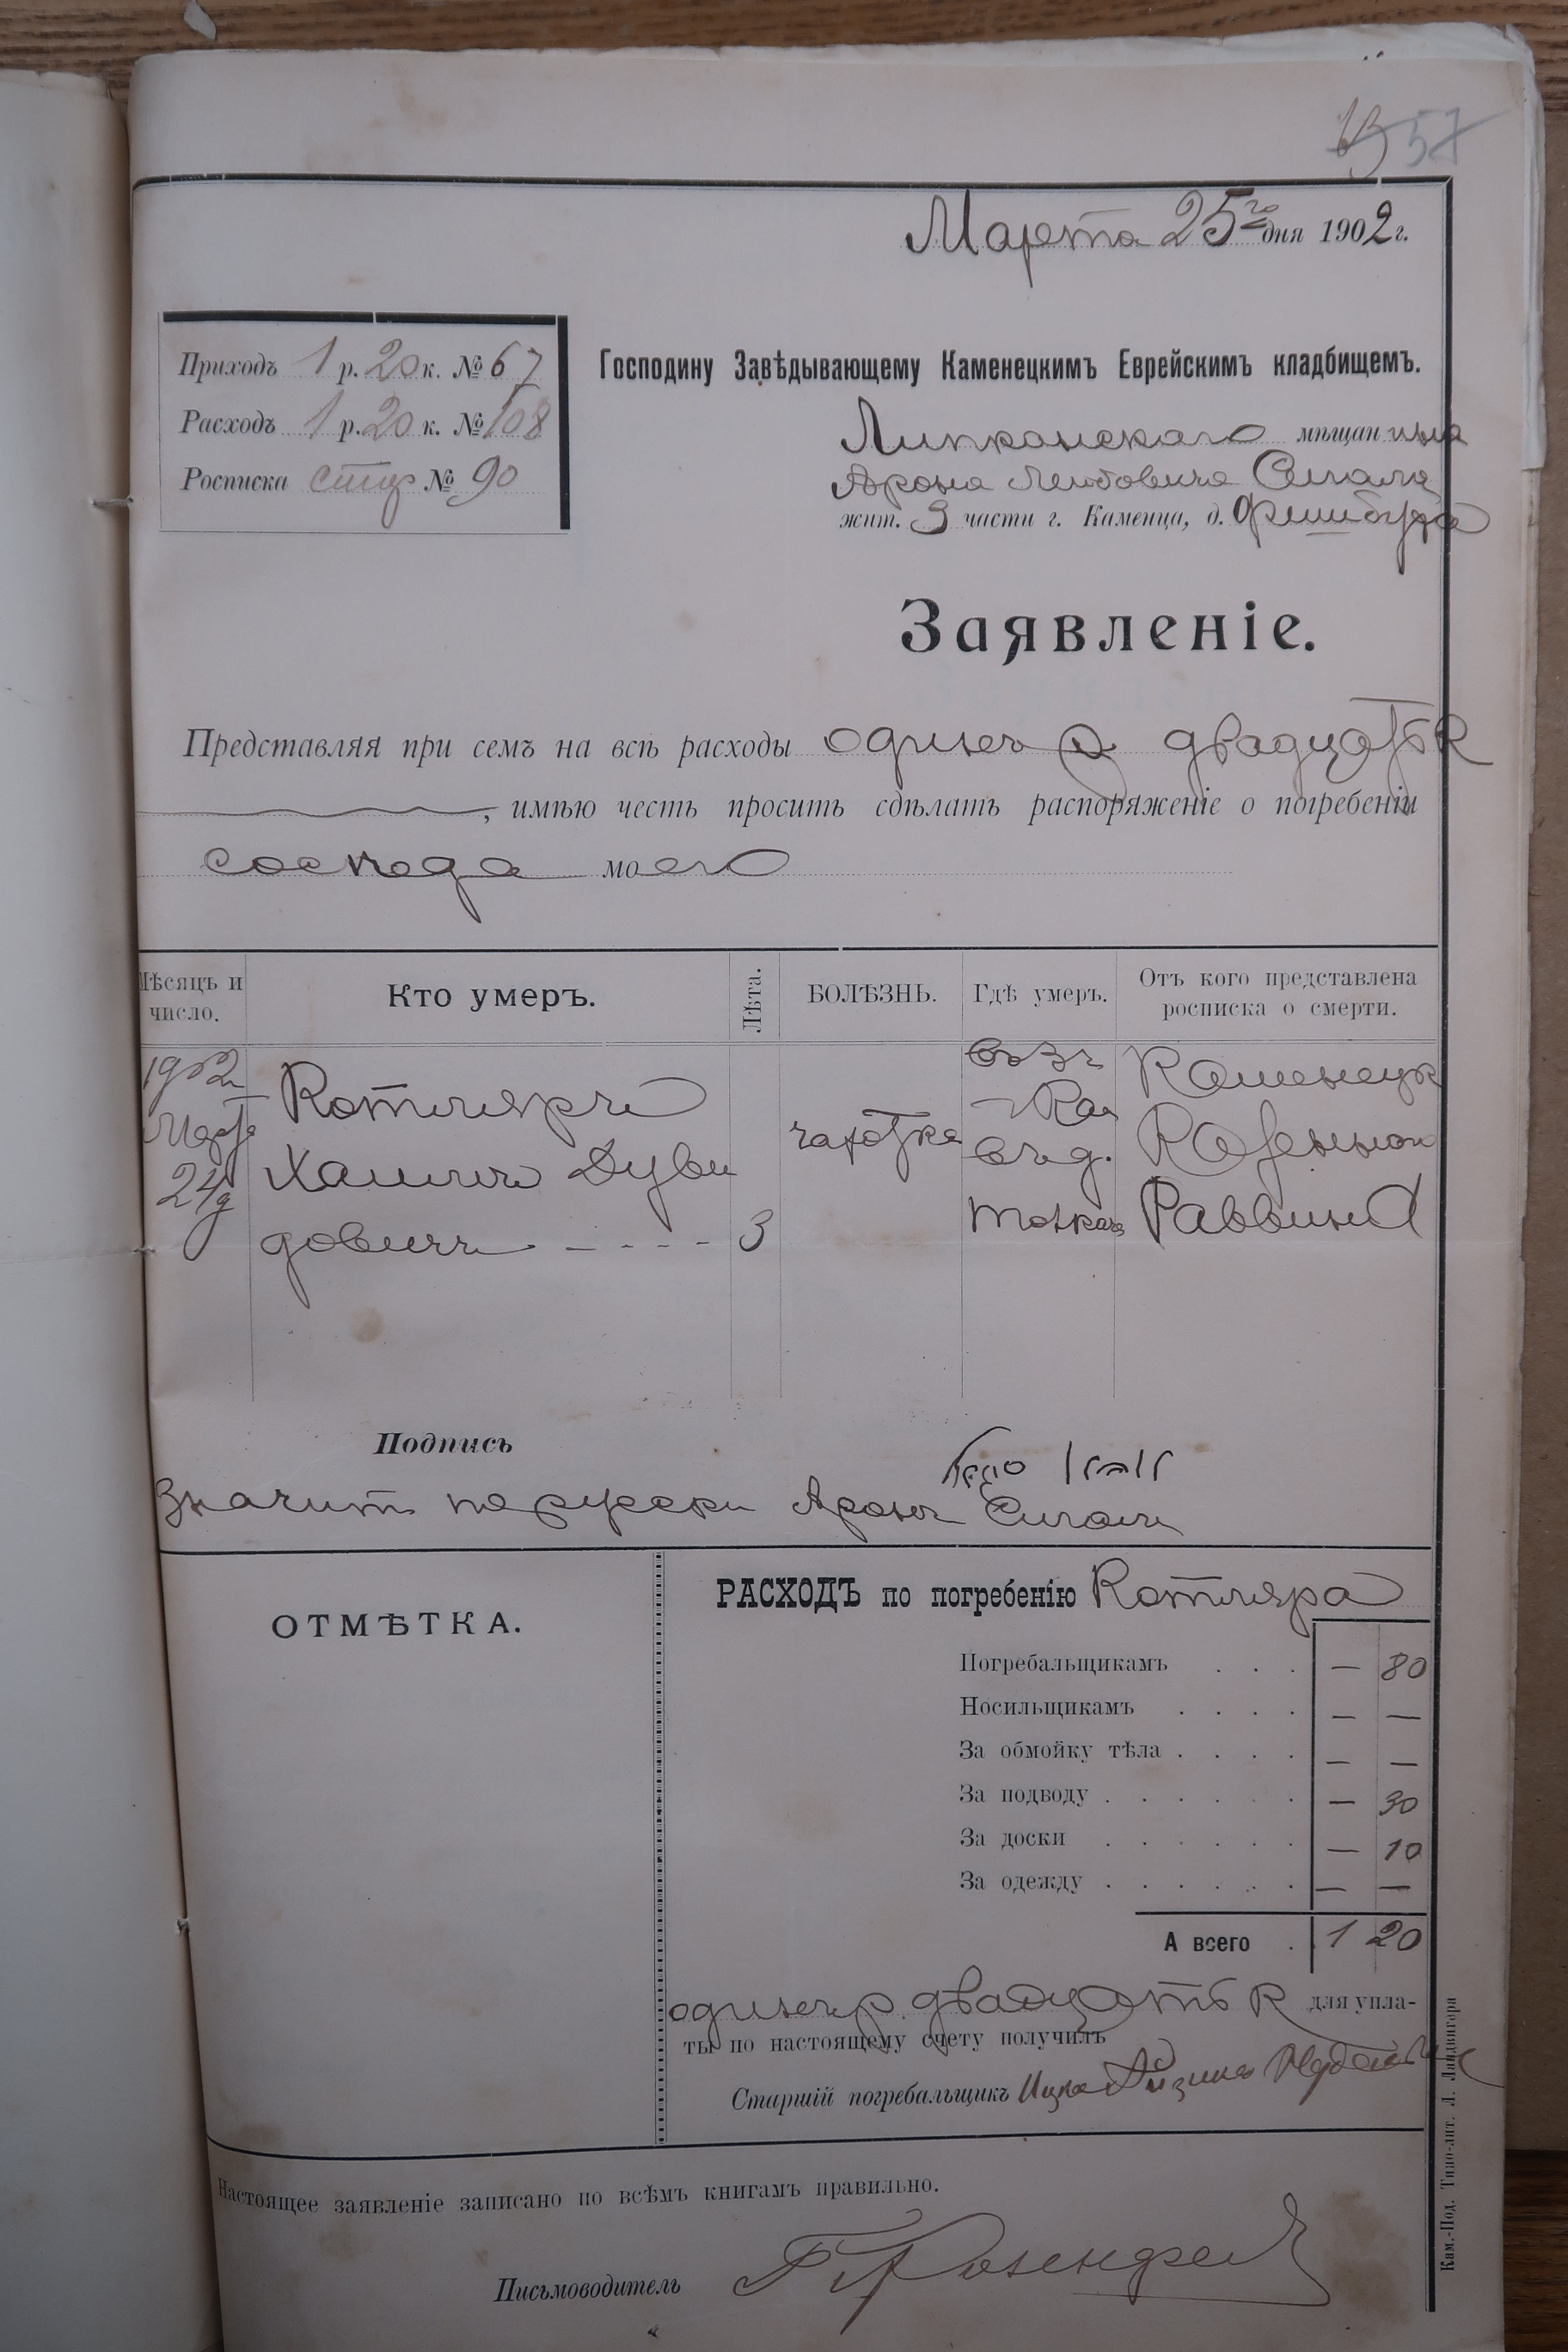 57
Марта 25го дня 1902 г.
Приходъ 1 р. 20 к. № 67
Расходъ 1 р. 20 к. № 108
Росписка стр № 90
Господину Завѣдывающему Каменецкимъ Еврейскимъ кладбищемъ.
Липканскаго мѣщанина
Арона Лейбовича Сигала
жит. 3 части г. Каменца, д.
Заявленіе.
Представляя при семъ на всѣ расходы одинъ р двадцать к
, имѣю честь просить сдѣлать распоряженіе о погребеніи
соседа моего
Мѣсяцъ и число. Кто умеръ. Лѣта. БОЛѢЗНЬ. Гдѣ умеръ. Отъ кого представлена росписка о смерти.
1902 Котляръ Каменецк
Март Хаимъ Дуви чахотка въ д. Казеннаго
24 Раввина
довичъ - - - - 3
Подпись
Значит по русски Аронъ Сигалъ
ОТМѢТКА.
РАСХОДЪ по погребенію Котляра
Погребальщикамъ . . . — 80
Носильщикамъ . . . . — —
За обмойку тѣла . . . . — —
За подводу . . . . . . — 30
За доски . . . . . . — 10
За одежду . . . . . . — —
А всего . 1 20
одинъ р. двадцать к для упла-
ты по настоящему счету получилъ
Старшій погребальщикъ Ицко Айзикъ
Настоящее заявленіе записано по всѣмъ книгамъ правильно.
Письмоводитель Розенфел
Кам.-Под. Типо-лит. Л. Ландвигера